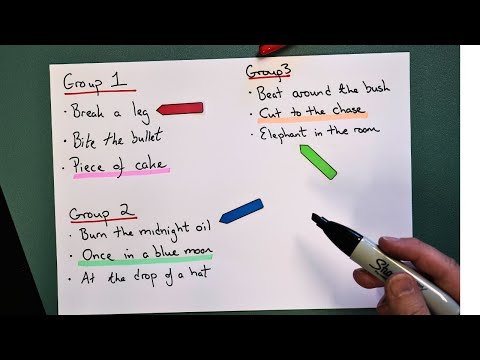 Group 1
· Break a leg
· Bite the bullet
· Piece of cake
Group 2
· Burn the midnight oil
· Once in a blue moon
· At the drop of a hat
Group3
· Beat around the bush
· Cut to the chase
· Elephant in the room